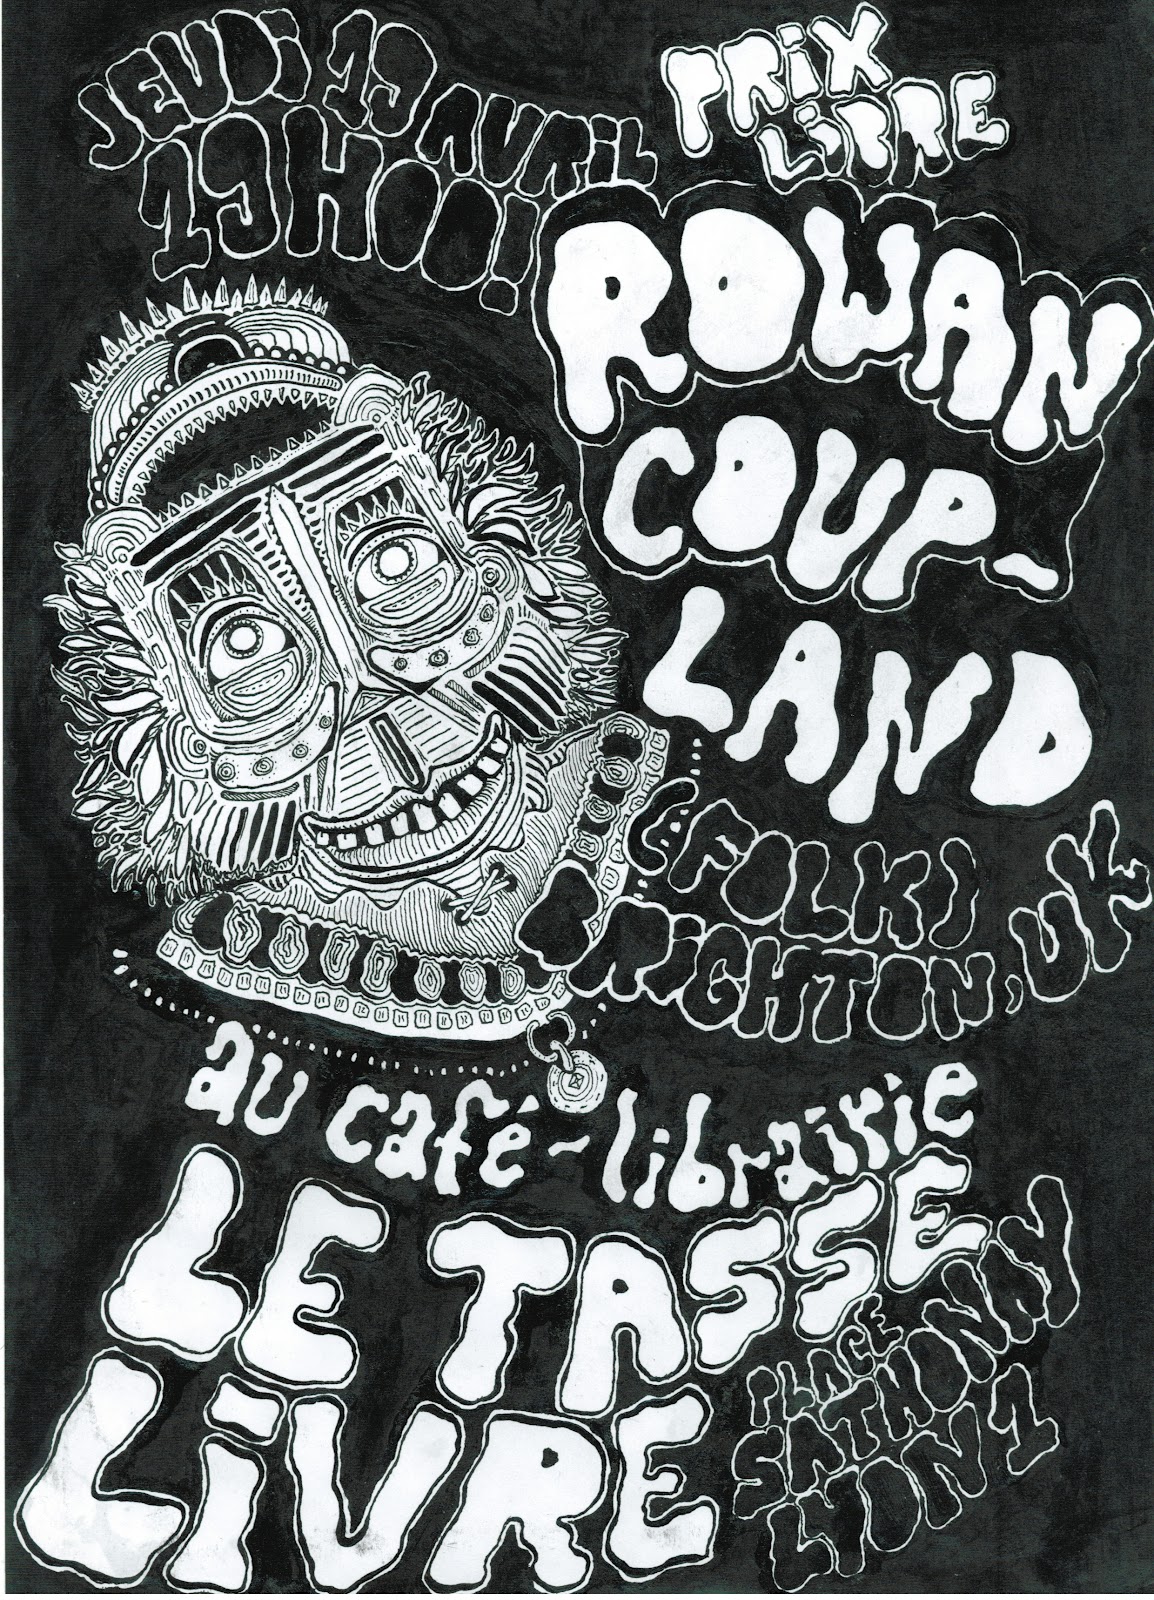 JEUDi 19 AVRiL
19H00!
PRiX
LiBRE
ROWAN
COUP-
LAND
(FOLK)
BRiGHTON, UK
au café-librairie
LE TASSE
LiVRE
PLACE
SATHONNAY
LYON 1